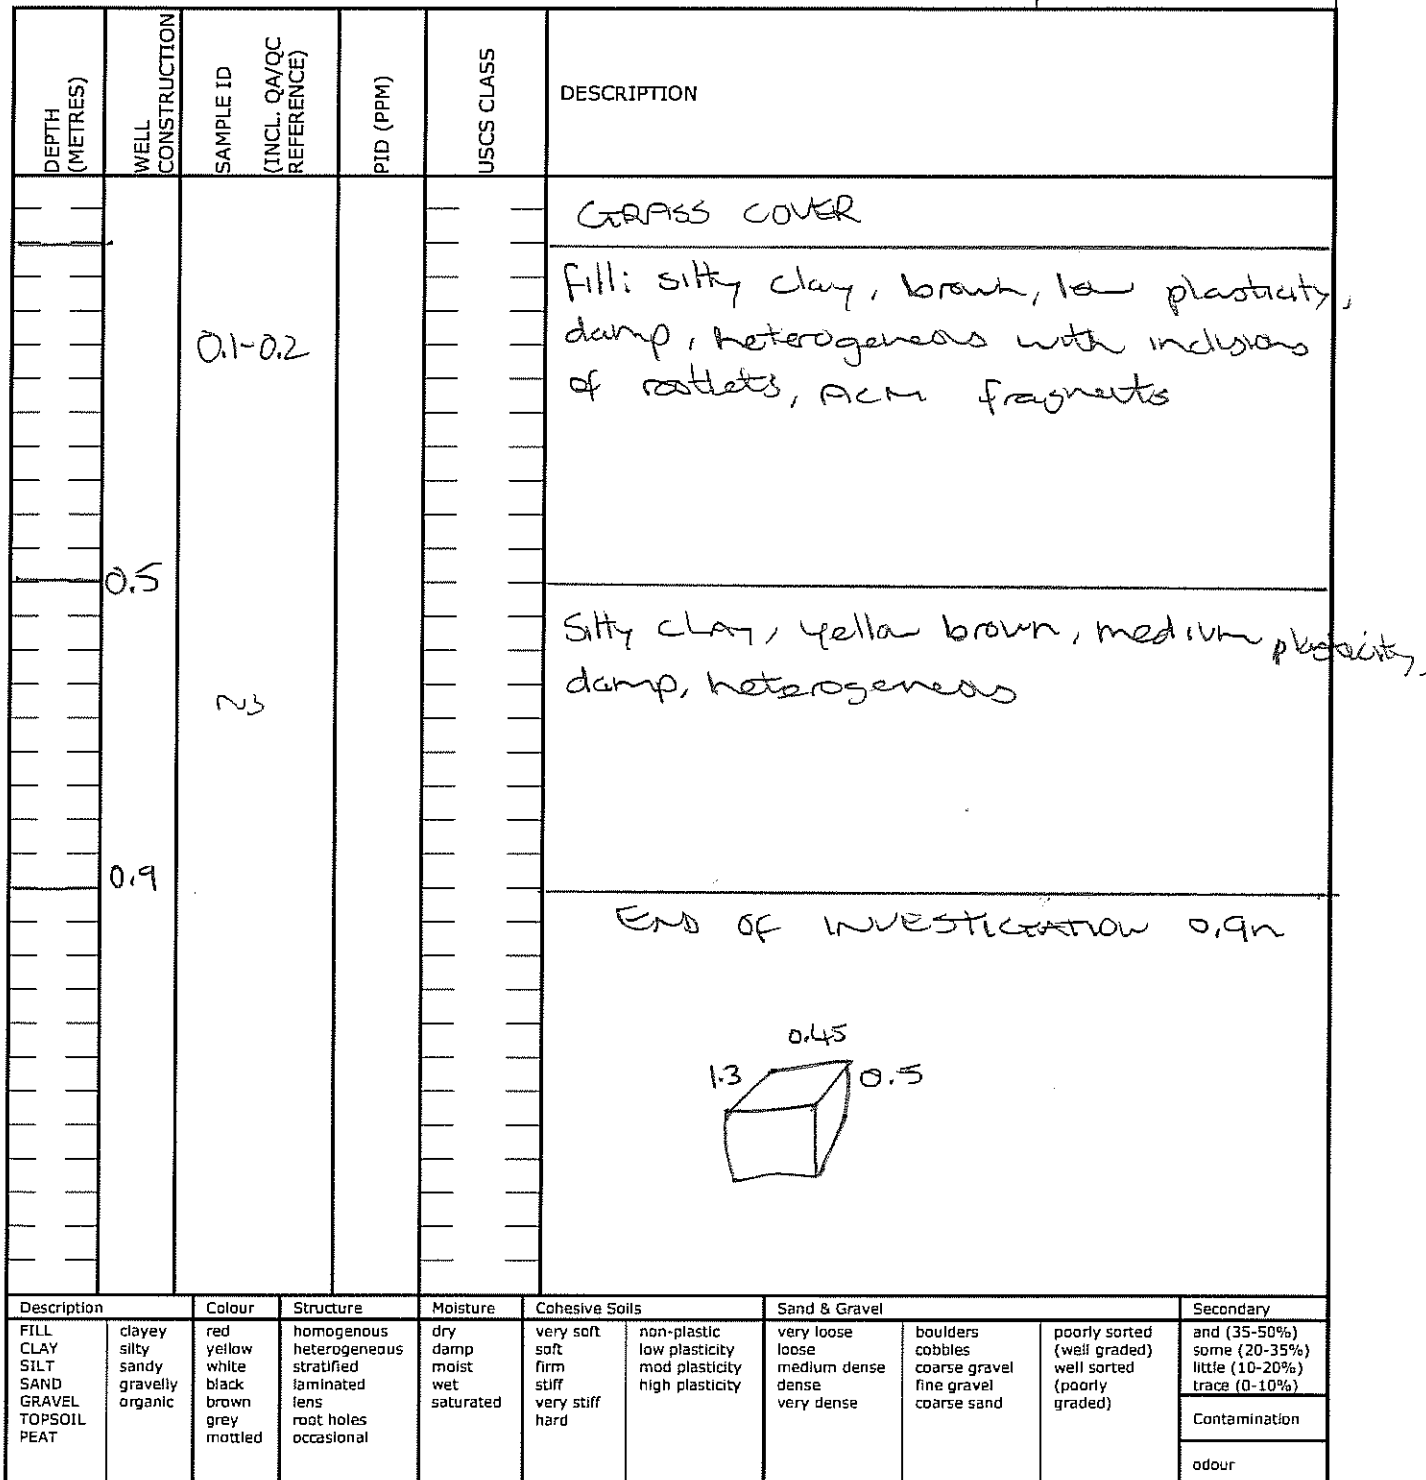 DEPTH
(METRES)
WELL
CONSTRUCTION
SAMPLE ID
(INCL. QA/QC
REFERENCE)
PID (PPM)
USCS CLASS
DESCRIPTION
GRASS COVER
Fill: silty clay, brown, low plasticity,
0.1-0.2
damp, heterogeneous with inclusions
of rootlets, ACM fragments
0.5
Silty clay, yellow brown, medium plasticity,
damp, heterogeneous
NS
0.9
END OF INVESTIGATION 0.9m
0.45
1.3
0.5
Description
FILL
CLAY
SILT
SAND
GRAVEL
TOPSOIL
PEAT
clayey
silty
sandy
gravelly
organic
Colour
red
yellow
white
black
brown
grey
mottled
Structure
homogenous
heterogeneous
stratified
laminated
lens
root holes
occasional
Moisture
dry
damp
moist
wet
saturated
Cohesive Soils
very soft
soft
firm
stiff
very stiff
hard
non-plastic
low plasticity
mod plasticity
high plasticity
Sand & Gravel
very loose
loose
medium dense
dense
very dense
boulders
cobbles
coarse gravel
fine gravel
coarse sand
poorly sorted
(well graded)
well sorted
(poorly
graded)
Secondary
and (35-50%)
some (20-35%)
little (10-20%)
trace (0-10%)
Contamination
odour